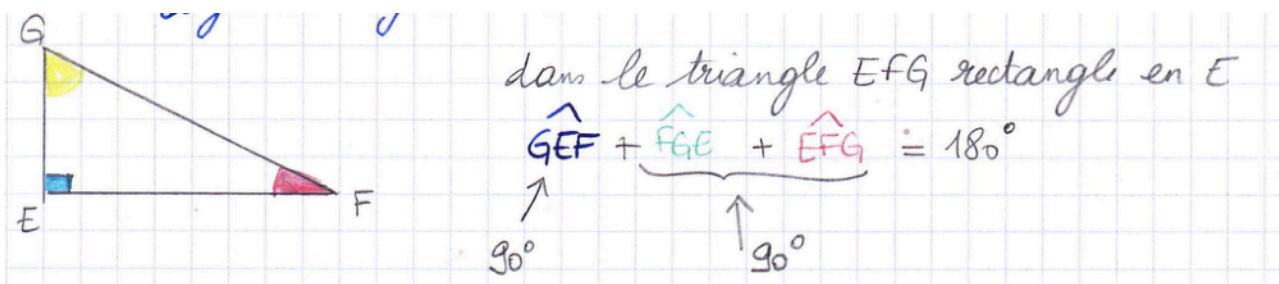 G
E
F
dans le triangle EFG rectangle en E
GEF + FGE + EFG = 180°
90°
90°